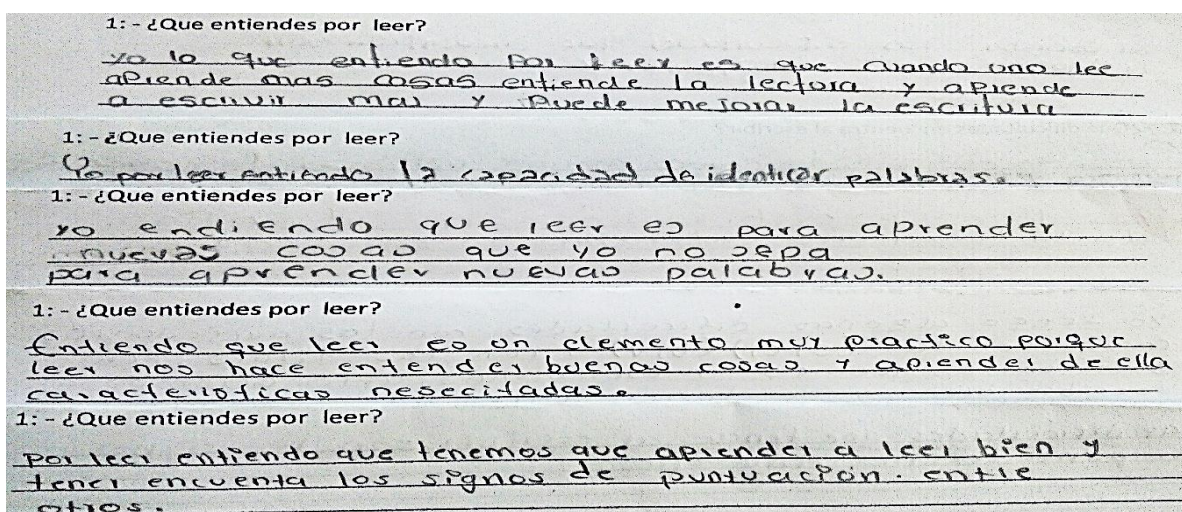 1: - ¿Que entiendes por leer?
yo lo que entiendo por leer es que cuando uno lee
aprende mas cosas entiende la lectura y aprende
a escrivir mas y puede mejorar la escritura
1: - ¿Que entiendes por leer?
Yo por leer entiendo la capacidad de identicar palabras.
1: - ¿Que entiendes por leer?
yo endiendo que leer es para aprender
nuevas cosas que yo no sepa
para aprender nuevas palabras.
1: - ¿Que entiendes por leer?
Entiendo que leer es un elemento muy practico porque
leer nos hace entender buenas cosas y aprender de ella
caracteristicas nesecitadas.
1: - ¿Que entiendes por leer?
Por leer entiendo que tenemos que aprender a leer bien y
tener encuenta los signos de puntuacion. entre
otros.